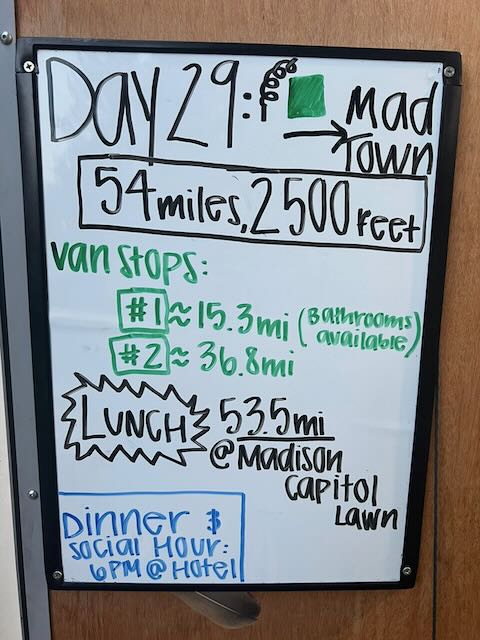 Day 29: → Mad
Town
54 miles, 2500 feet
Van Stops:
#1 ≈ 15.3mi (Bathrooms
available)
#2 ≈ 36.8mi
Lunch 53.5mi
@Madison
Capitol
Lawn
Dinner $
Social Hour:
6PM @ Hotel